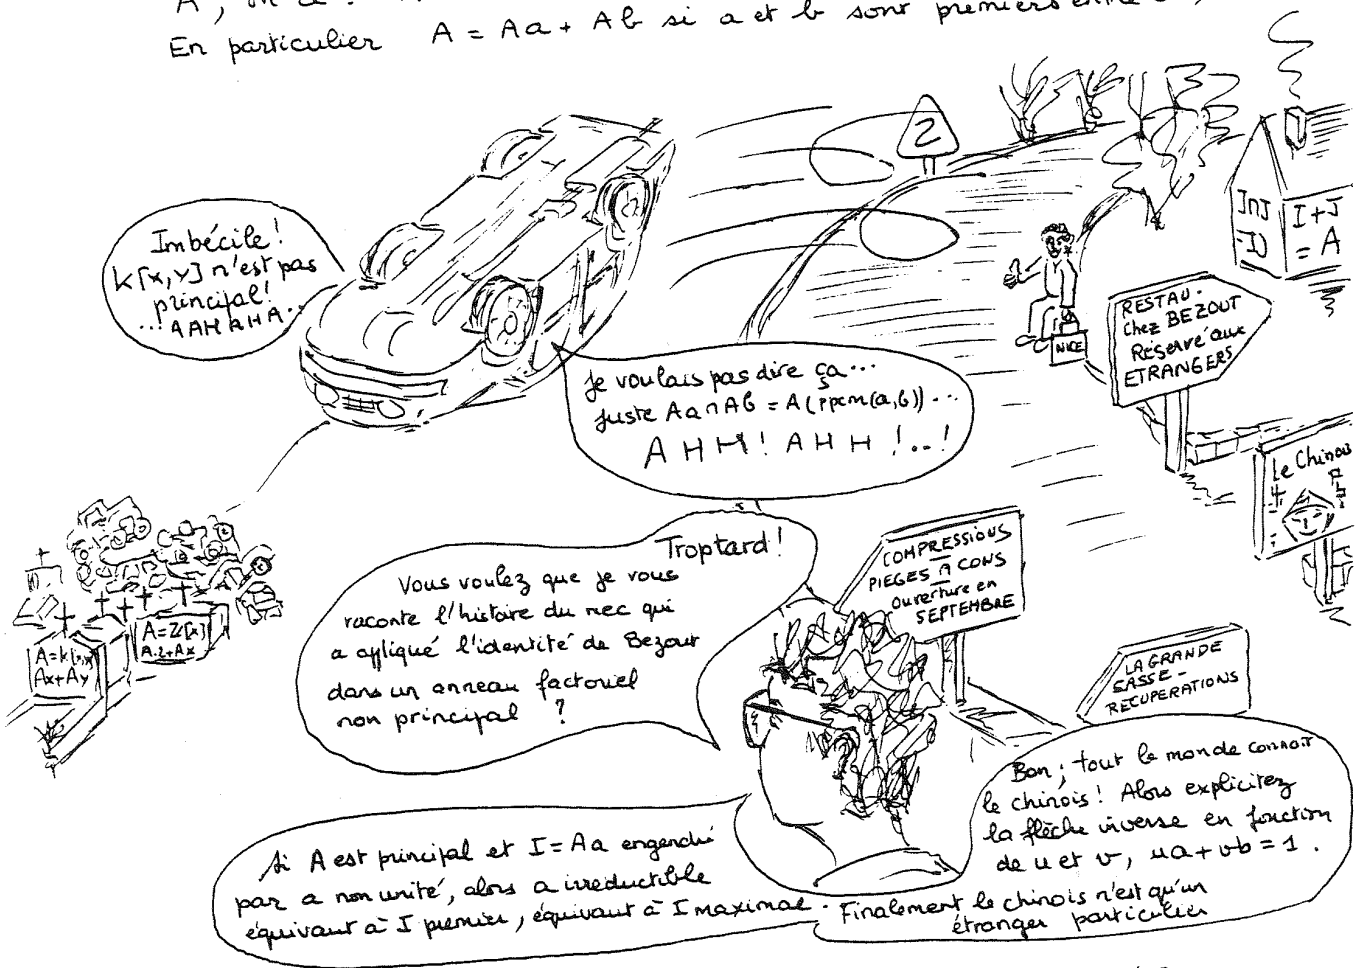 A, on a :
En particulier A = Aa + Ab si a et b sont premiers entre
2
Imbécile!
k[x,Y] n'est pas
principal!
...AAHAHA..
I∩J
=IJ
I+J
= A
NICE
RESTAU.
Chez BEZOUT
Réservé aux
ETRANGERS
Je voulais pas dire ça...
Juste Aa∩Ab = A(ppcm(a,b))...
AHH! AHH!..!
le Chinois
Troptard!
Vous voulez que je vous
raconte l'histoire du mec qui
a appliqué l'identité de Bezout
dans un anneau factoriel
non principal ?
COMPRESSIONS
PIEGES A CONS
Ouverture en
SEPTEMBRE
A=Z[x]
A.2+Ax
A=k[x,y]
Ax+Ay
LA GRANDE
CASSE -
RECUPERATIONS
Bon; tout le monde connait
le chinois! Alors explicitez
la flèche inverse en fonction
de u et v, ua+vb=1.
Si A est principal et I=Aa engendré
par a non unité, alors a irreductible
équivaut à I premier, équivaut à I maximal.
Finalement le chinois n'est qu'un
étranger particulier